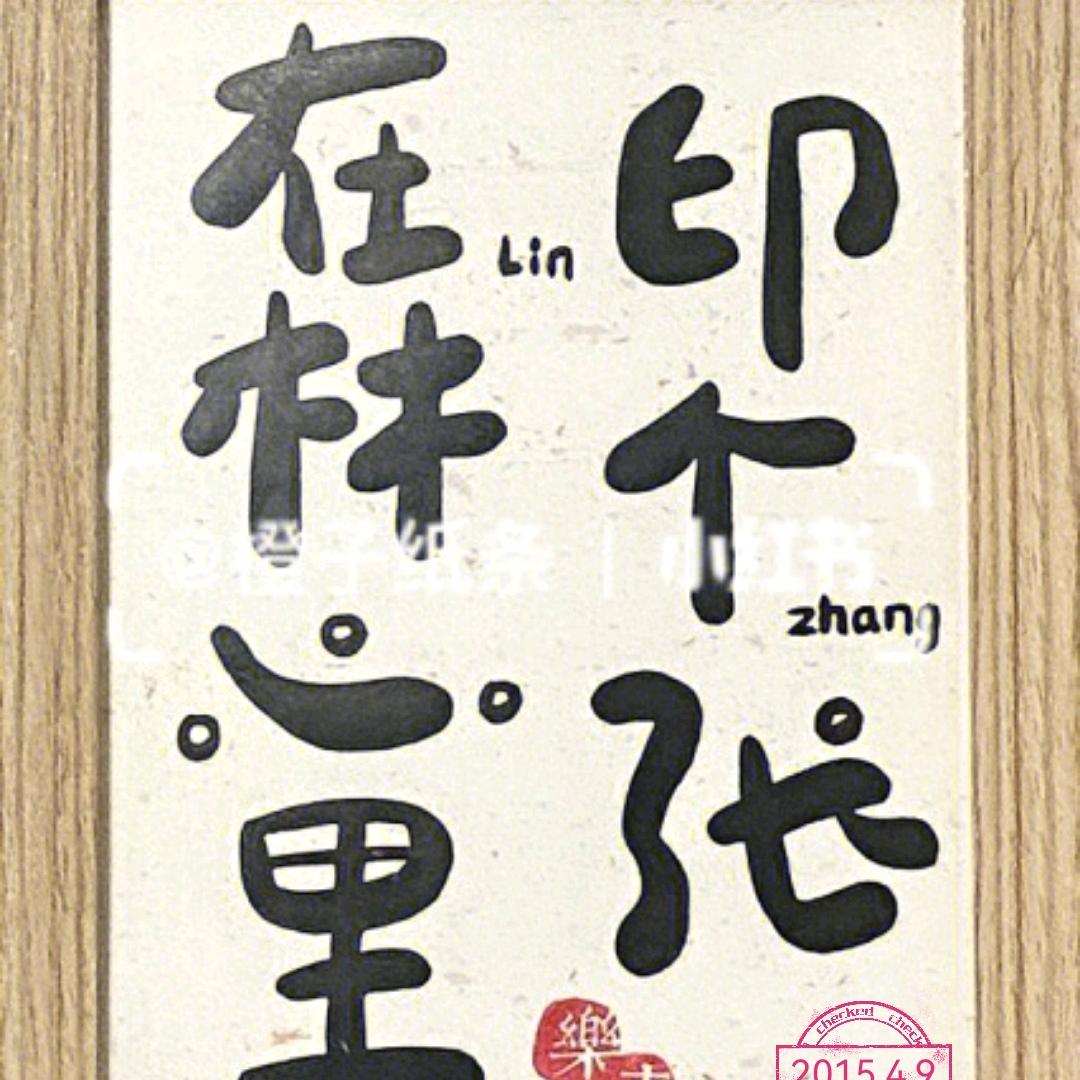 在林心里
Lin
印个张
zhang
@橙子纸条 | 小红书
樂
checked check
2015.4.9